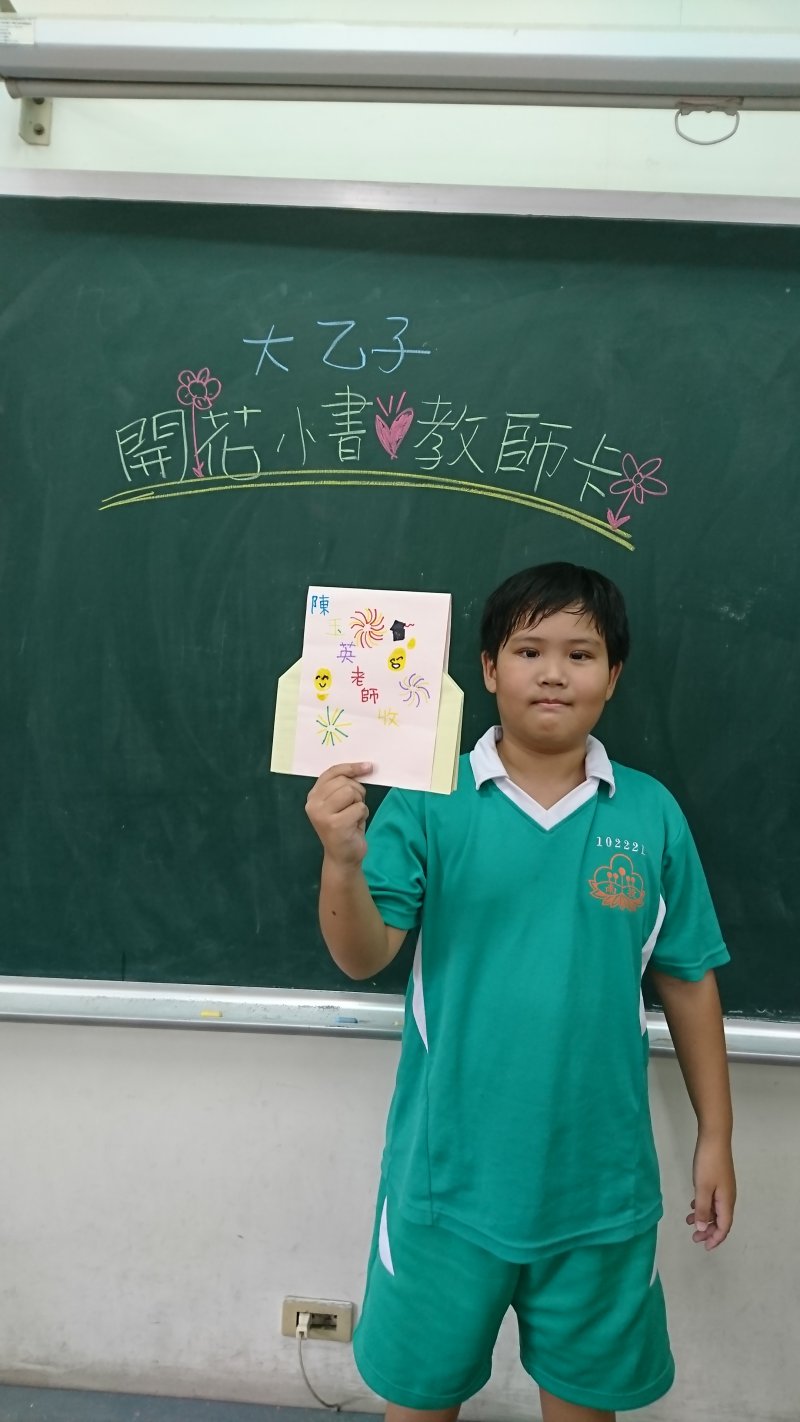 大乙子
開花小書教師卡
陳
玉
英
老
師
收
102221